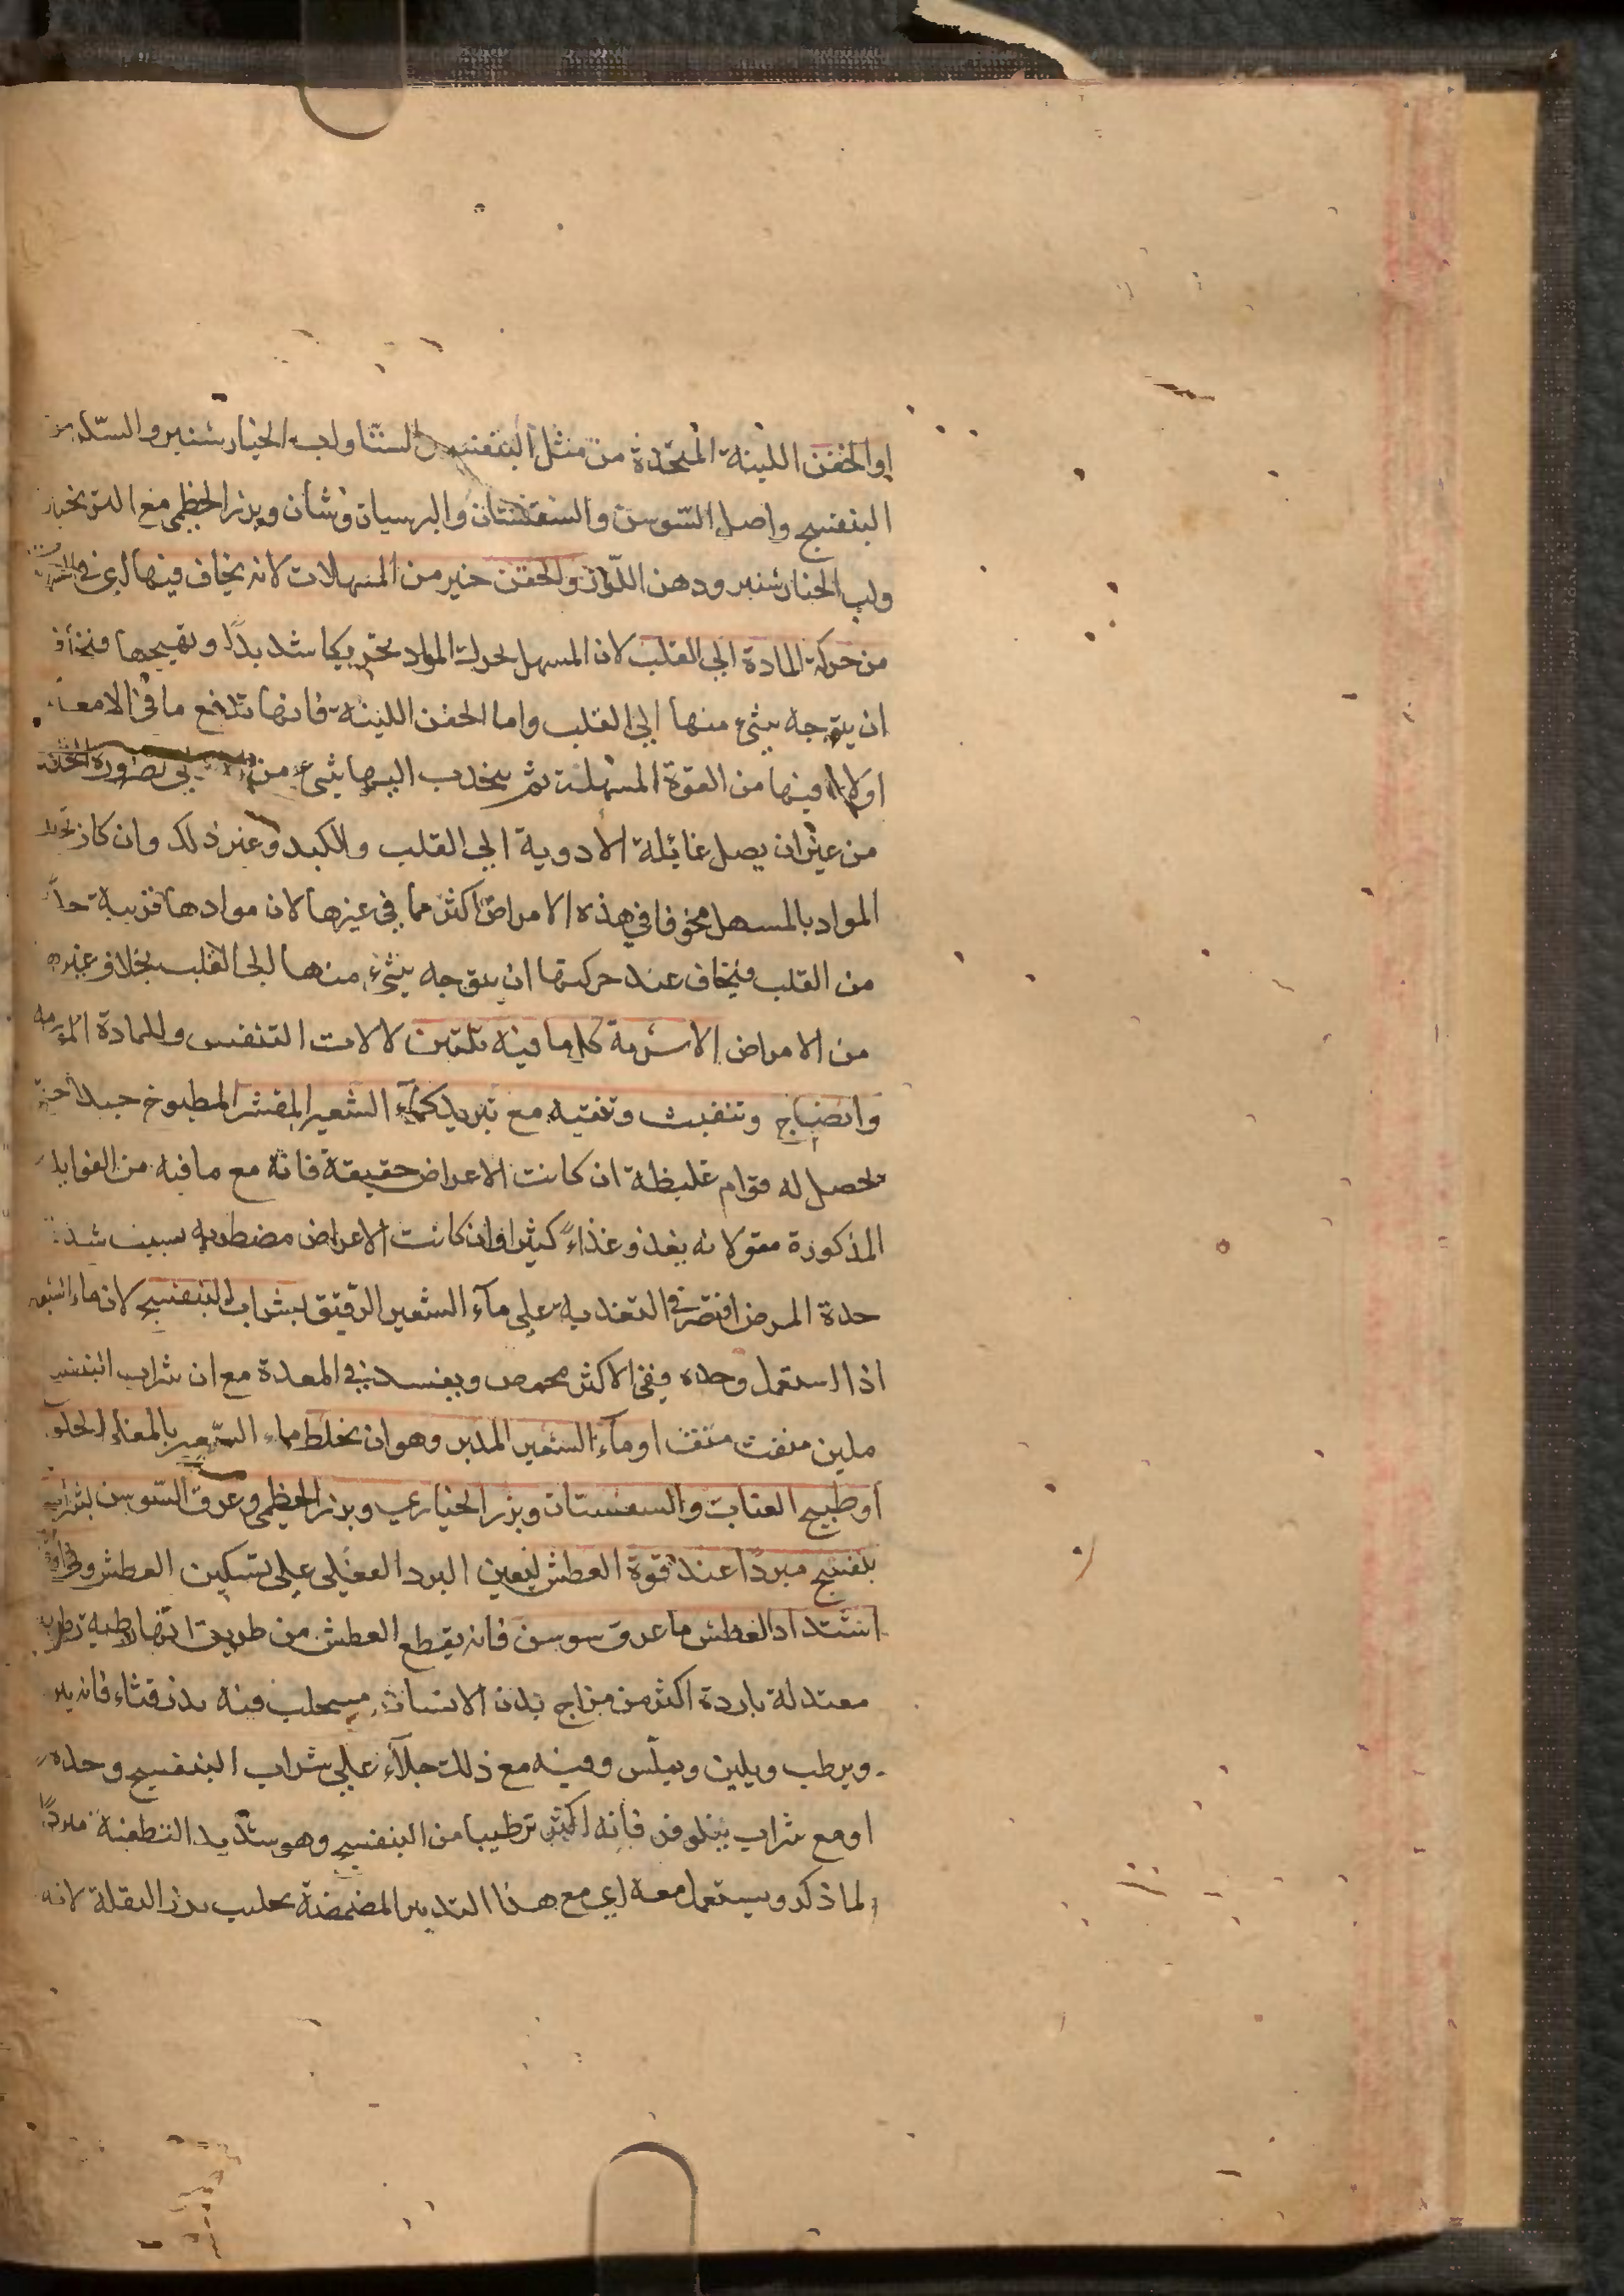 او الحقن اللينة المتخذة من مثل البنفسج والسنا ولب الخيار شنبر والسكر من
البنفسج واصل السوسن والسفستان والبرسياوشان وبزر الخطمي مع الترنجبين
ولب الخيار شنبر ودهن اللوز والحقن خير من المسهلات لانه يخاف فيها اي في
من حركة المادة الي القلب لان المسهل يحرك المواد تحريكا شديدا وتهيجها فيخاف
ان يتوجه شيء منها الي القلب واما الحقن اللينة فانها تدفع ما في الامعاء
اولا فيها من القوة المسهلة ثم ينجذب اليها شيء من لضرورة الخلاء
من غير ان يصل غائلة الادوية الي القلب والكبد وغير ذلك وان كان
المواد بالمسهل مخوفا في هذه الامراض اكثر مما في غيرها لان موادها قريبة جدا
من القلب فيخاف عند حركتها ان يتوجه شيء منها الي القلب بخلاف غيره
من الامراض الاشربة كل ما فيه تليين لالات التنفس والمادة
وانضاج وتنفيث وتنقيه مع تبريد كماء الشعير المقشر المطبوخ جيدا حتي
تحصل له قوام غليظة ان كانت الاعراض حقيقة فانه مع ما فيه من الفوايد
المذكورة مقولانه يغذو غذاء كثيرا وان كانت الاعراض مضطربه بسبب شدة
حدة المرض اقتصر في التغذية علي ماء الشعير الرقيق بشراب البنفسج لان ماء الشعير
اذا استعمل وحده ففي الاكثر يحمض ويفسد في المعدة مع ان شراب البنفسج
ملين منفث منقث او ماء الشعير المدبر وهو ان يخلط ماء الشعير بالمغلي الحلو
او طبيخ العناب والسفستان وبزر الخيار ي وبزر الخطمي وعرق السوسن بشراب
بنفسج مبردا عند قوة العطش ليعين البرد الفعلي علي تسكين العطش
اشتداد العطش ماء عرق سوسن فانه يقطع العطش من طريق انها رطبة رطوبة
معتدلة باردة اكثر من مزاج بدن الانسان مستحلب فيه بزر قثاء فانه يبرد
ويرطب ويلين ويملس وفيه مع ذلك جلاء علي شراب البنفسج وحده
او مع شراب نيلوفر فانه اكثر ترطيبا من البنفسج وهو شديد التطفئة مبردا
لما ذكر ويستعمل معه اي مع هذا التدبير المضمضة بحليب بزر البقلة لانه